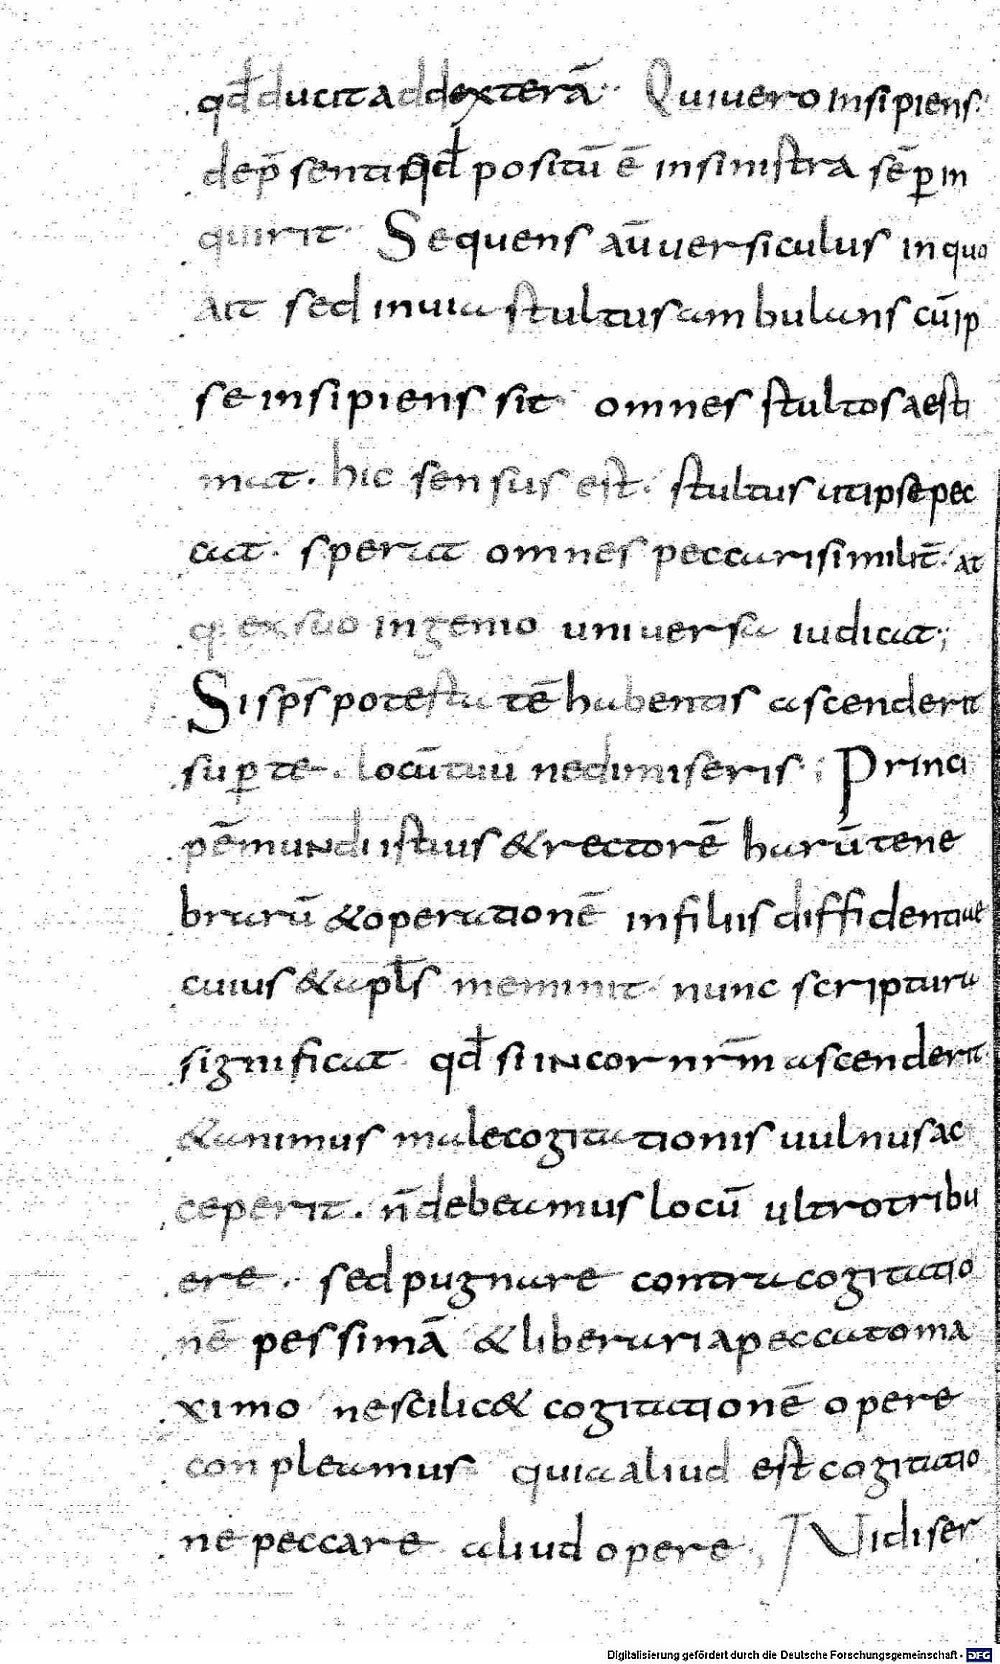 qđ ducit ad dexterā. Qui vero insipiens
dep̄senti qđ positū ē in sinistra sēp in
quirit. Sequens aū versiculus in quo
ait sed in via stultus ambulans cū ip
se insipiens sit omnes stultos aesti
mat. hic sensus est. stultus ut ipse pec
cat. sperat omnes peccari similit̄. at
q. ex suo ingenio universa iudicat;
Si sp̄s potestatē habentis ascenderit
sup te. locū tuū ne dimiseris; Princi
pē mundi istius & rectorē harū tene
brarū & operationē in filiis diffidentiae
cuius & apl̄s meminit nunc scriptura
significat qđ si in cor nr̄m ascenderit
& animus male cogitationis uulnus ac
ceperit. n̄ debeamus locū ultro tribu
ere. sed pugnare contra cogitatio
nē pessimā & liberari a peccato ma
ximo ne scilic& cogitationē opere
conpleamus quia aliud est cogitatio
ne peccare aliud opere; In diser
Digitalisierung gefördert durch die Deutsche Forschungsgemeinschaft - DFG